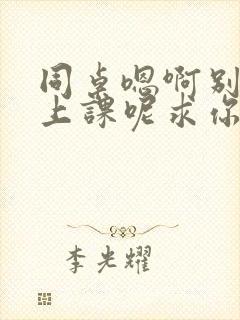 同桌嗯啊别
上課呢求你
李光耀